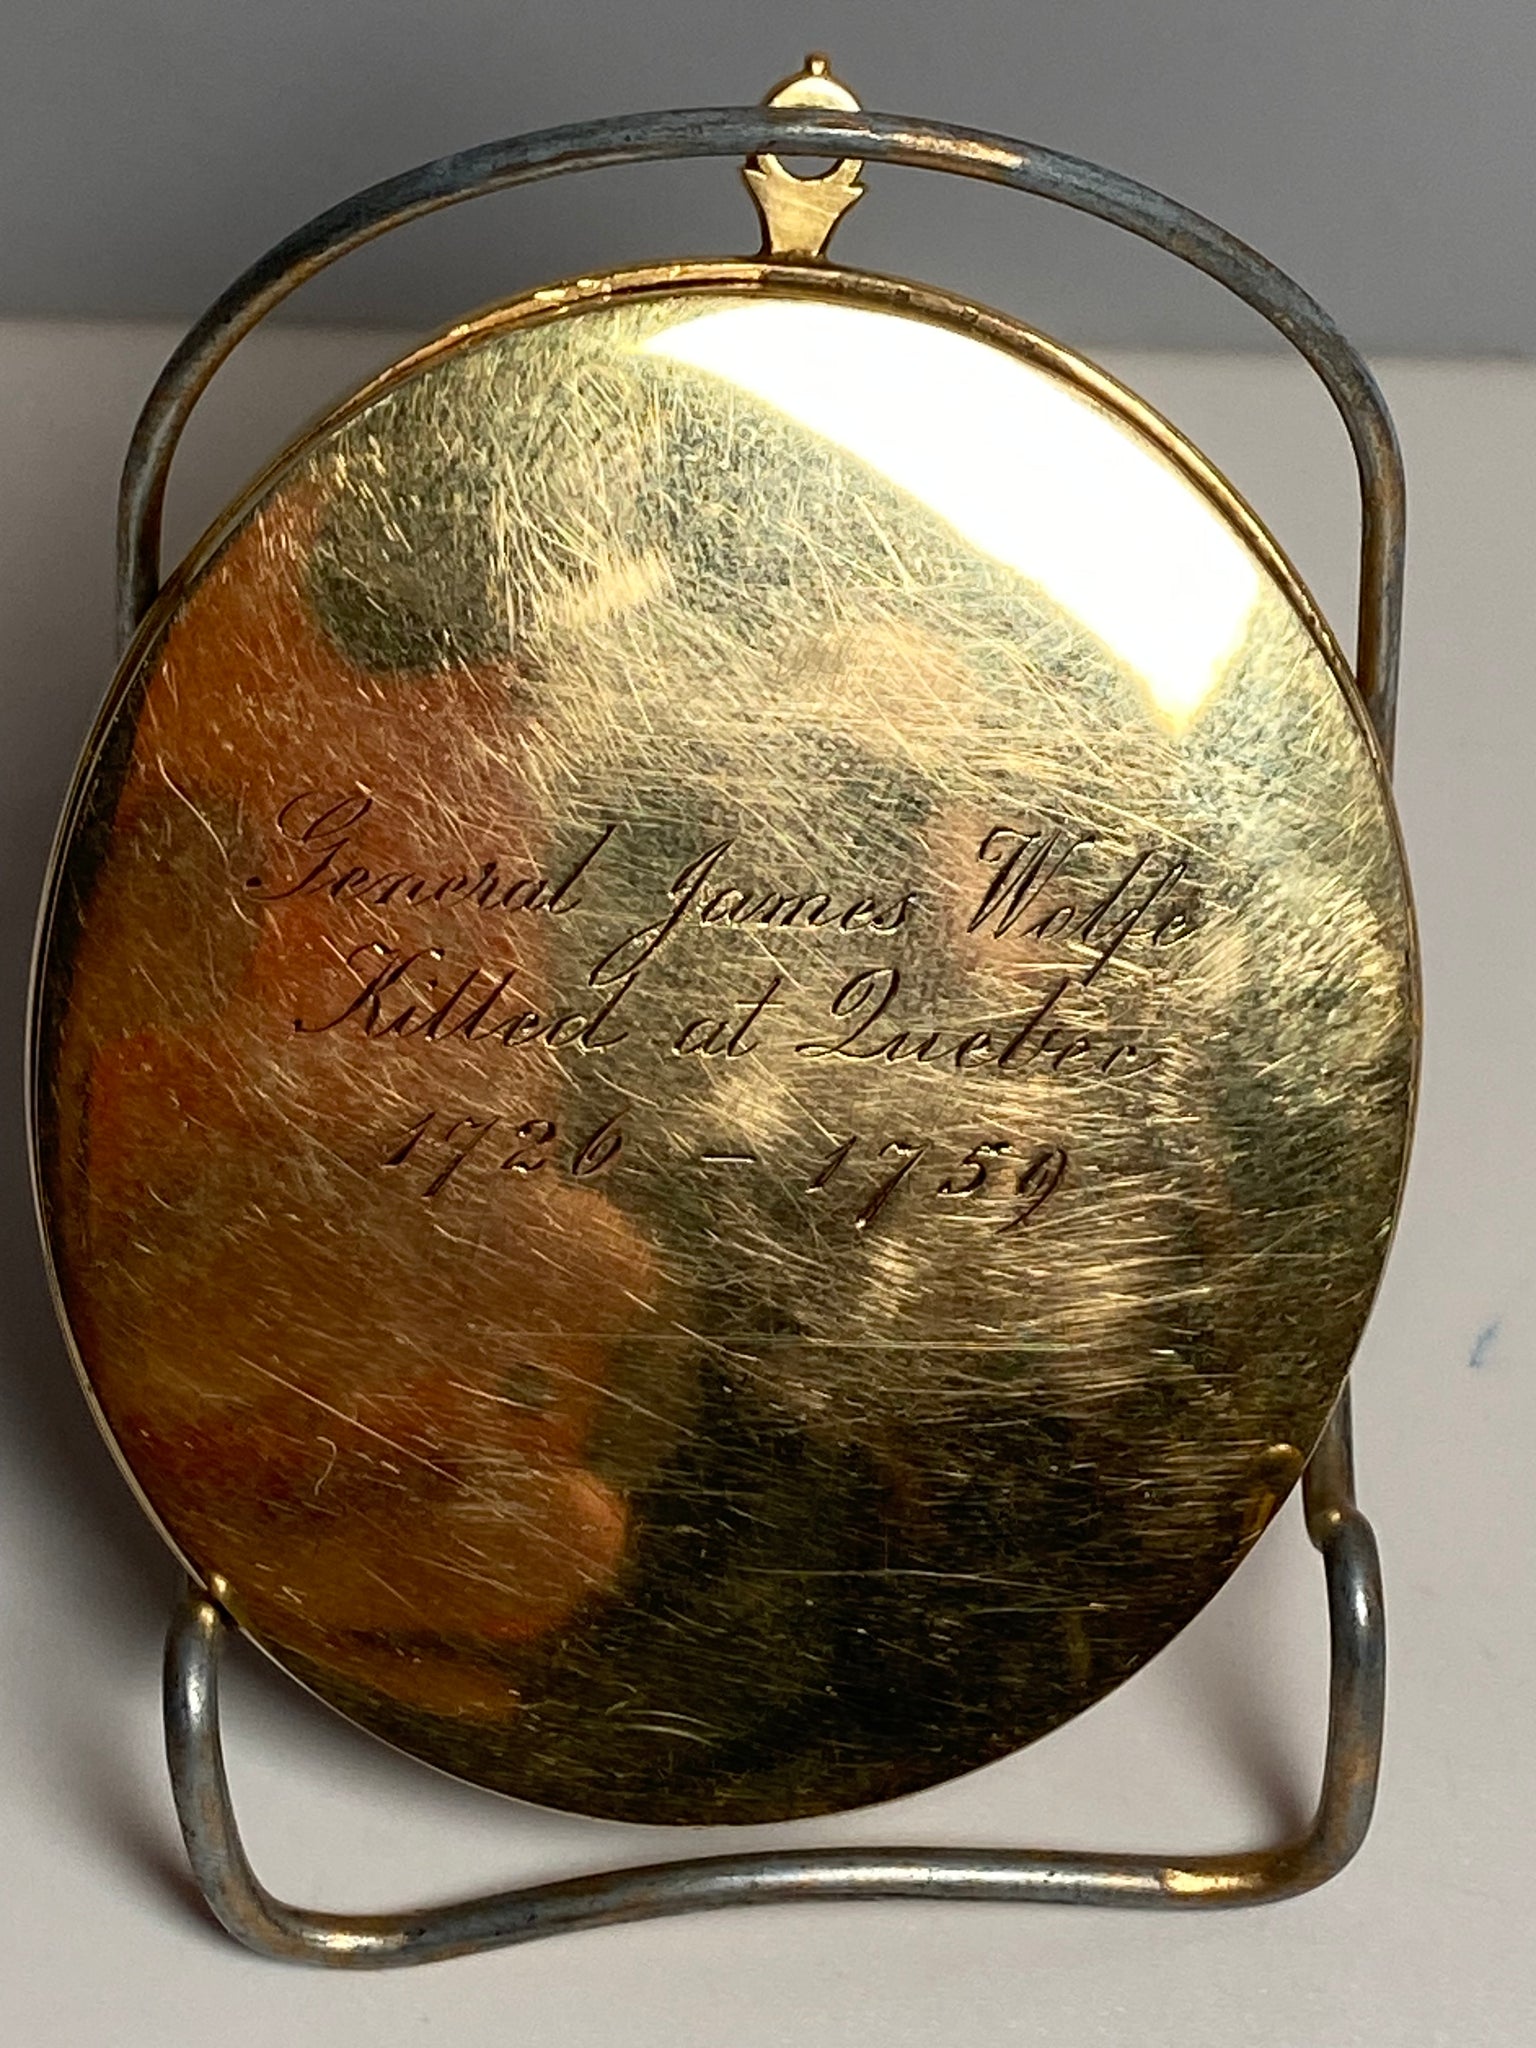 General James Wolfe
Killed at Quebec
1726 - 1759